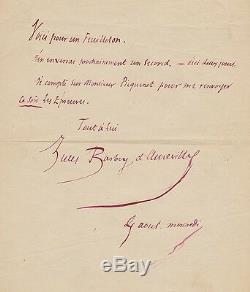 Voici pour un Feuilleton.
J'en enverrai prochainement un second, – d'ici deux jours.
Je compte sur Monsieur pour me renvoyer
ce soir les Epreuves.
Tout à lui
Jules Barbey d'Aurevilly
aout. mercredi